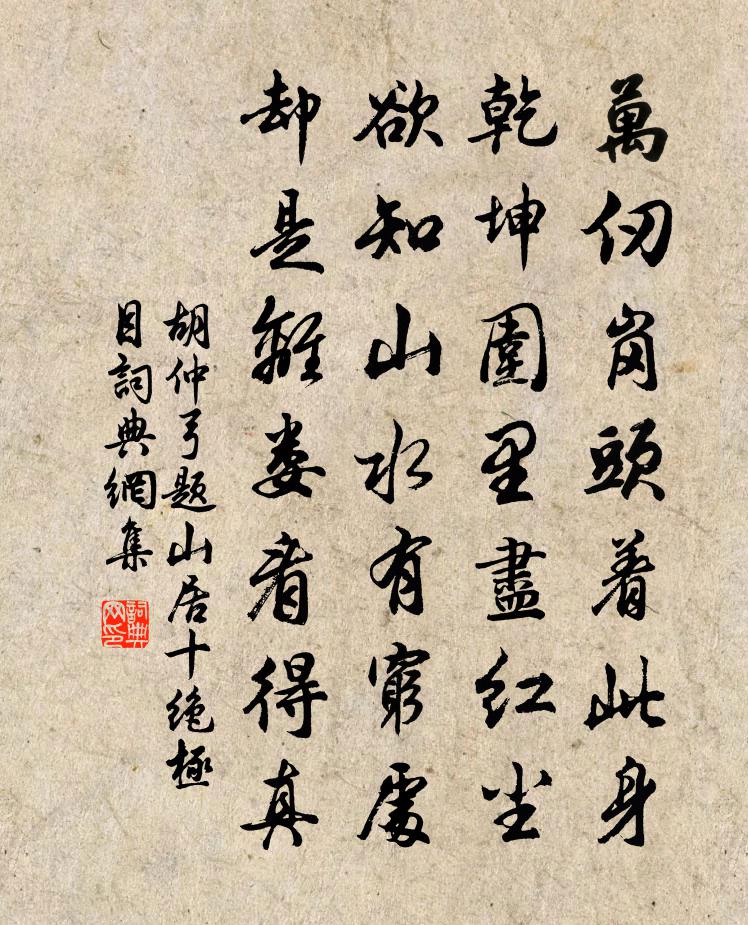 萬仞崗頭着此身
乾坤圍里盡紅尘
欲知山水有窮處
却是離娄看得真
胡仲弓題山居十绝極
目詞典網集
詞典
网印